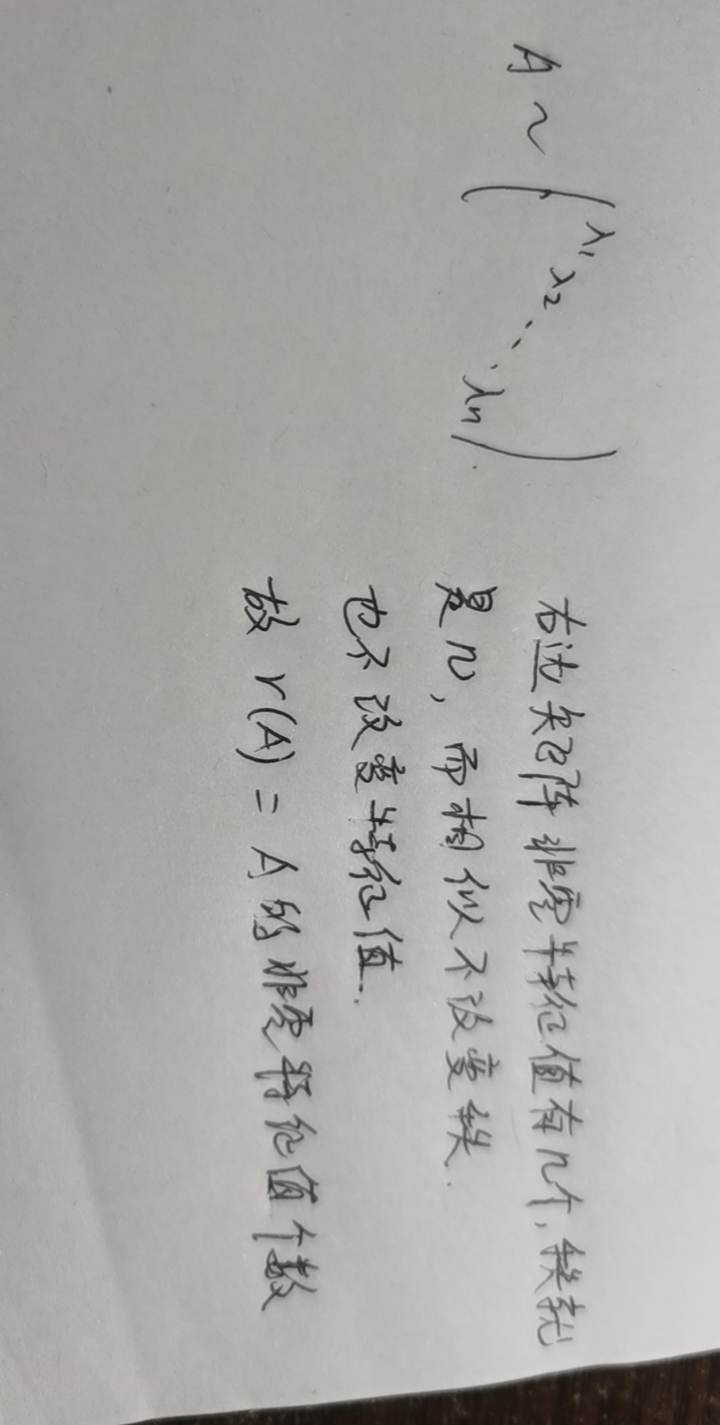 A ~ (λ₁ λ₂ ⋱ λn).
右边矩阵非零特征值有n个,秩就
是n,而相似不改变秩.
也不改变特征值.
故 r(A) = A的非零特征值个数